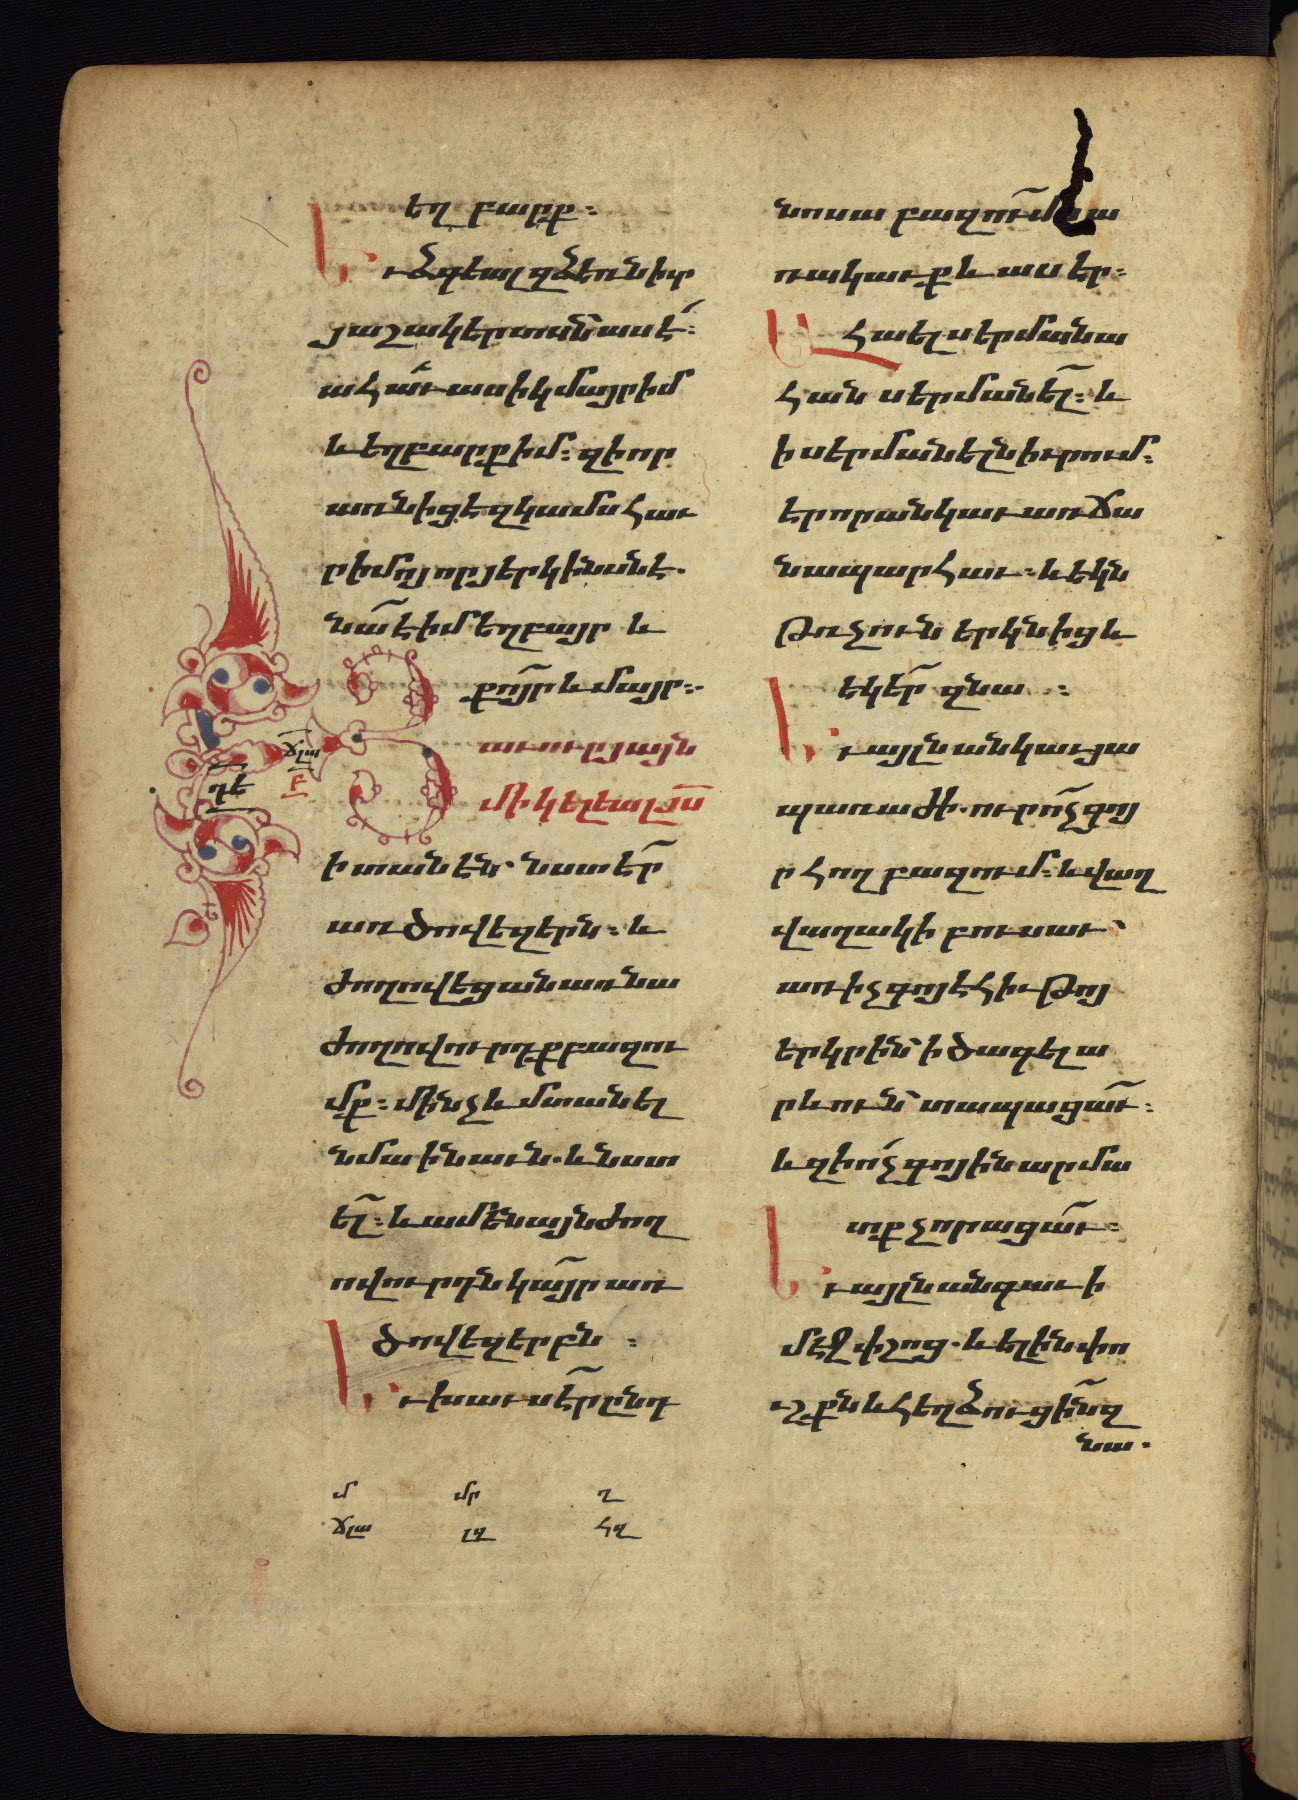 եղբարք։
Եւ ձգեալ զձեռն իւր
յաշակերտսն՝ ասէ՛։
ահաւասիկ մայր իմ
և եղբարք իմ։ զի որ
առնիցէ զկամս հաւ
ր իմոյ որ յերկինսն է.
նա է իմ եղբայր և
քոյր և մայր։
Յաւուր յայն
միկ ելեալ յս̄
ի տանէն՝ նստէր
առ ծովեզերն։ և
ժողովեցան առ նա
ժողովուրդք բազու
մք։ մինչև մտանել
նմա ի նաւն. և նստ
ել։ և ամենայն ժող
ովուրդն կայր առ
ծովեզերբն։
Եւ խաւսէր ընդ
ճլա
բ
նոսա բազում ա
ռակաւք և ասէր։
Ահա ել սերմանա
հան սերմանել։ և
ի սերմանելն իւրում։
երորանկաւ առ ճա
նապարհաւ։ և եկն
թռչուն երկնից և
եկեր զնա։
Եւ այլն անկաւ յա
պառաժի. ուր ոչ գոյ
ր հող բազում։ և վաղ
վաղակի բուսաւ՝
առ ի չգոյէ հիւթոյ
երկրին՝ ի ծագել ա
րևուն՝ տապացաւ։
և զի ո՛չ գոյին արմա
տք չորացաւ։
Եւ այլն անգաւ ի
մէջ փշոց. և ելին փո
ւշքն և հեղձուցին զ
նա.
մ մր ղ
ճլա լզ հզ